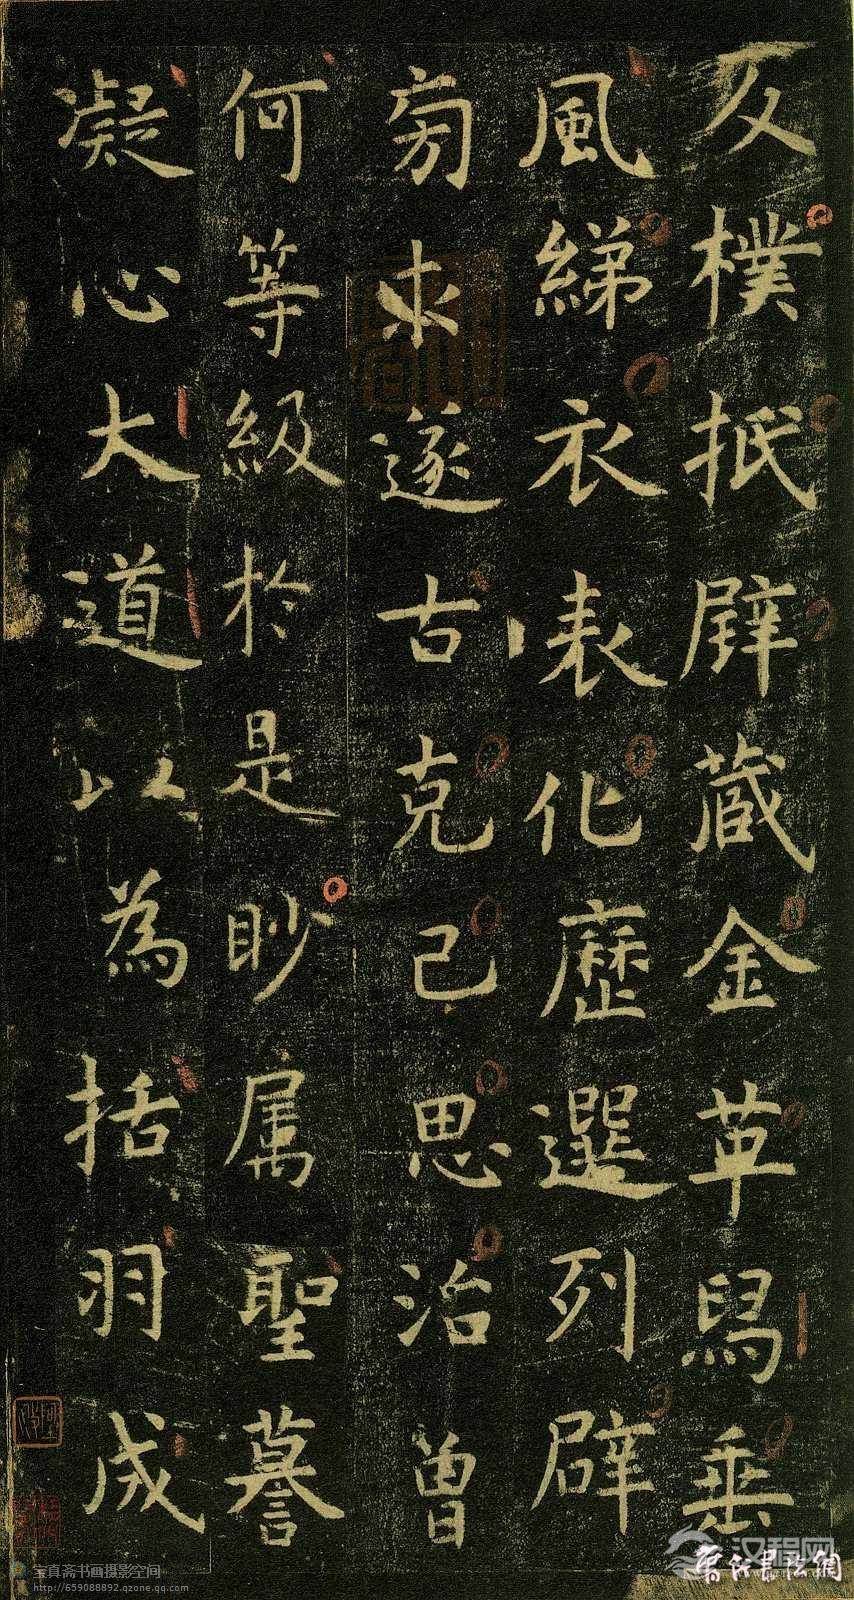 反樸抵璧藏金革舄垂
風綈衣表化歷選列辟
旁求遂古克己思治曾
何等級於是眇属聖謩
凝心大道以為括羽成
宝真斋书画摄影空间
http://659088892.qzone.qq.com
汉程网